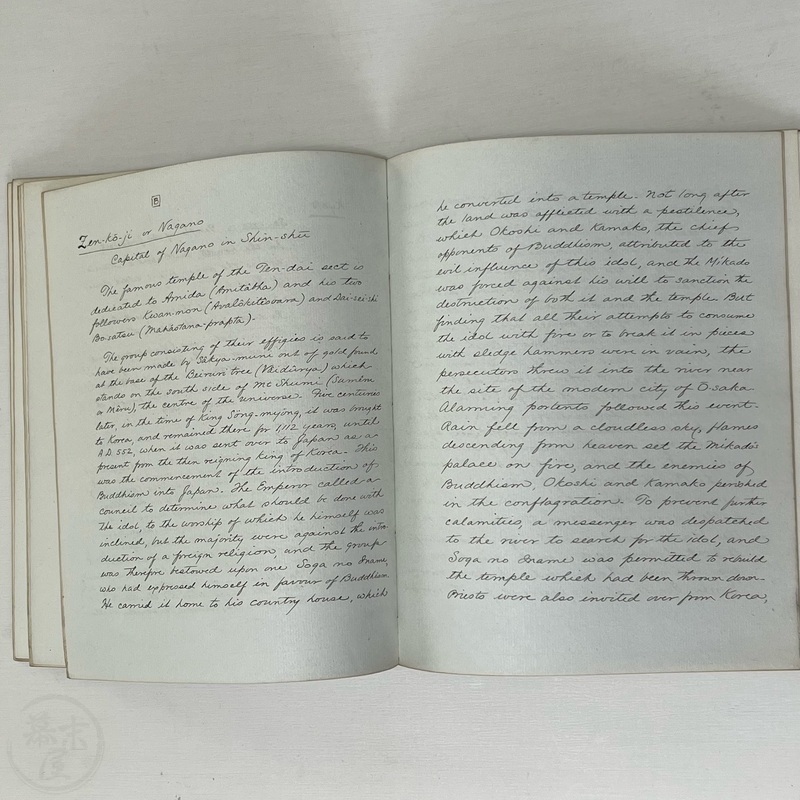 Zen-kō-ji or Nagano
Capital of Nagano in Shin-shū
The famous temple of the Ten-dai sect is
dedicated to Amida (Amitâbha) and his two
followers Kwan-non (Avalôkitêsvara) and Dai-sei-shi
Bo-satsu (Mahâstana-prapta).
The group consisting of their effigies is said to
have been made by Sâkya-muni out of gold found
at the base of the Beiruri tree (Vaidûrya) which
stands on the south side of Mt Shumi (Sumêru
or Mêru), the centre of the universe. Five centuries
later, in the time of King Söng-myöng, it was brought
to Korea, and remained there for 1,112 years, until
A.D. 552, when it was sent over to Japan as a
present from the then reigning king of Korea. This
was the commencement of the introduction of
Buddhism into Japan. The Emperor called a
council to determine what should be done with
the idol, to the worship of which he himself was
inclined, but the majority were against the intro-
duction of a foreign religion, and the group
was therefore bestowed upon one Soga no Iname,
who had expressed himself in favour of Buddhism
He carried it home to his country house, which
he converted into a temple. Not long after
the land was afflicted with a pestilence,
which Okoshi and Kamako, the chief
opponents of Buddhism, attributed to the
evil influence of this idol, and the Mikado
was forced against his will to sanction the
destruction of both it and the temple. But
finding that all their attempts to consume
the idol with fire or to break it in pieces
with sledge hammers were in vain, the
persecutors threw it into the river near
the site of the modern city of O-saka
Alarming portents followed this event.
Rain fell from a cloudless sky, flames
descending from heaven set the Mikado's
palace on fire, and the enemies of
Buddhism, Okoshi and Kamako perished
in the conflagration. To prevent further
calamities, a messenger was despatched
to the river to search for the idol, and
Soga no Iname was permitted to rebuild
the temple which had been thrown down.
Priests were also invited over from Korea,